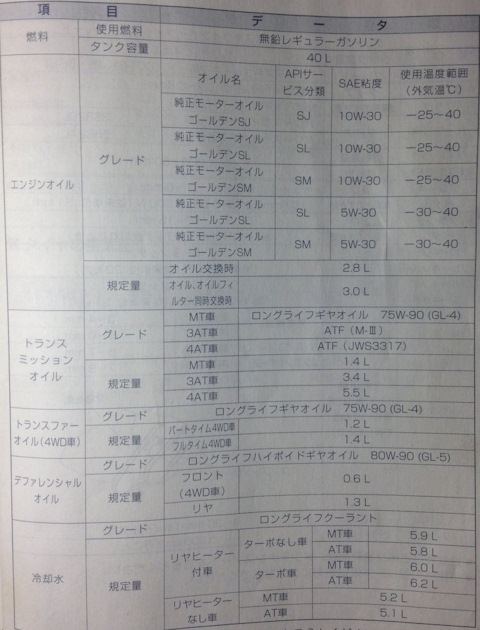 項 目 データ
燃料 使用燃料 無鉛レギュラーガソリン
タンク容量 40 L
エンジンオイル グレード オイル名 APIサービス分類 SAE粘度 使用温度範囲(外気温℃)
純正モーターオイル
ゴールデンSJ SJ 10W-30 −25〜40
純正モーターオイル
ゴールデンSL SL 10W-30 −25〜40
純正モーターオイル
ゴールデンSM SM 10W-30 −25〜40
純正モーターオイル
ゴールデンSL SL 5W-30 −30〜40
純正モーターオイル
ゴールデンSM SM 5W-30 −30〜40
規定量 オイル交換時 2.8 L
オイル、オイルフィ
ルター同時交換時 3.0 L
トランス
ミッション
オイル グレード MT車 ロングライフギヤオイル 75W-90 (GL-4)
3AT車 ATF(M-Ⅲ)
4AT車 ATF(JWS3317)
規定量 MT車 1.4 L
3AT車 3.4 L
4AT車 5.5 L
トランスファー
オイル(4WD車) グレード ロングライフギヤオイル 75W-90 (GL-4)
規定量 パートタイム4WD車 1.2 L
フルタイム4WD車 1.4 L
デファレンシャル
オイル グレード ロングライフハイポイドギヤオイル 80W-90 (GL-5)
規定量 フロント
(4WD車) 0.6 L
リヤ 1.3 L
冷却水 グレード ロングライフクーラント
規定量 リヤヒーター
付車 ターボなし車 MT車 5.9 L
AT車 5.8 L
ターボ車 MT車 6.0 L
AT車 6.2 L
リヤヒーター
なし車 MT車 5.2 L
AT車 5.1 L